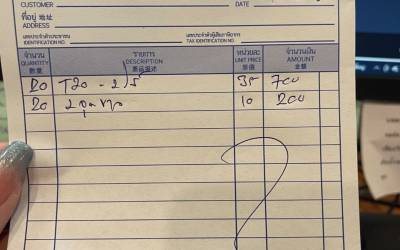 CUSTOMER DATE
ที่อยู่ 地址
ADDRESS
เลขประจำตัวประชาชน เลขประจำตัวผู้เสียภาษีอากร
IDENTIFICATION NO. TAX IDENTIFICATION NO.
จำนวน รายการ หน่วยละ จำนวนเงิน
QUANTITY DESCRIPTION UNIT PRICE AMOUNT
数量 单价 金额
20 T20 35 700
20 10 200